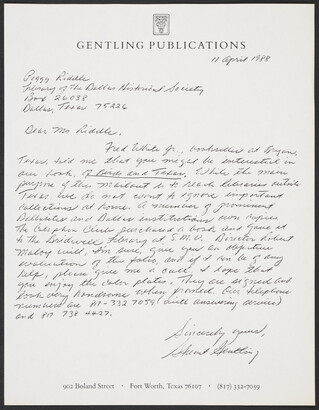 GENTLING PUBLICATIONS
11 April 1988
Peggy Riddle
Library of the Dallas Historical Society
Box 26038
Dallas, Texas 75226
Dear Ms Riddle,
Fred White Jr., bookseller at Bryan,
Texas, told me that you might be interested in
our book, Of Birds and Texas. While the main
purpose of this is to reach libraries outside
Texas, we do not want to ignore important
collections at home. A number of prominent
Dallasites and Dallas institutions own copies.
The Club purchased a book and gave it
to the Bridwell Library at S.M.U. Director Robert
Maloy will, I'm sure, give you an objective
evaluation of the folio, and if I can be of any
help, please give me a call. I hope that
you enjoy the color plates. They are signed and
look very handsome when framed. Our telephone
numbers are 817-332 7059 (with answering service)
and 817 738 4427.
Sincerely yours,
Stuart Gentling
902 Boland Street • Fort Worth, Texas 76107 • (817) 332-7059